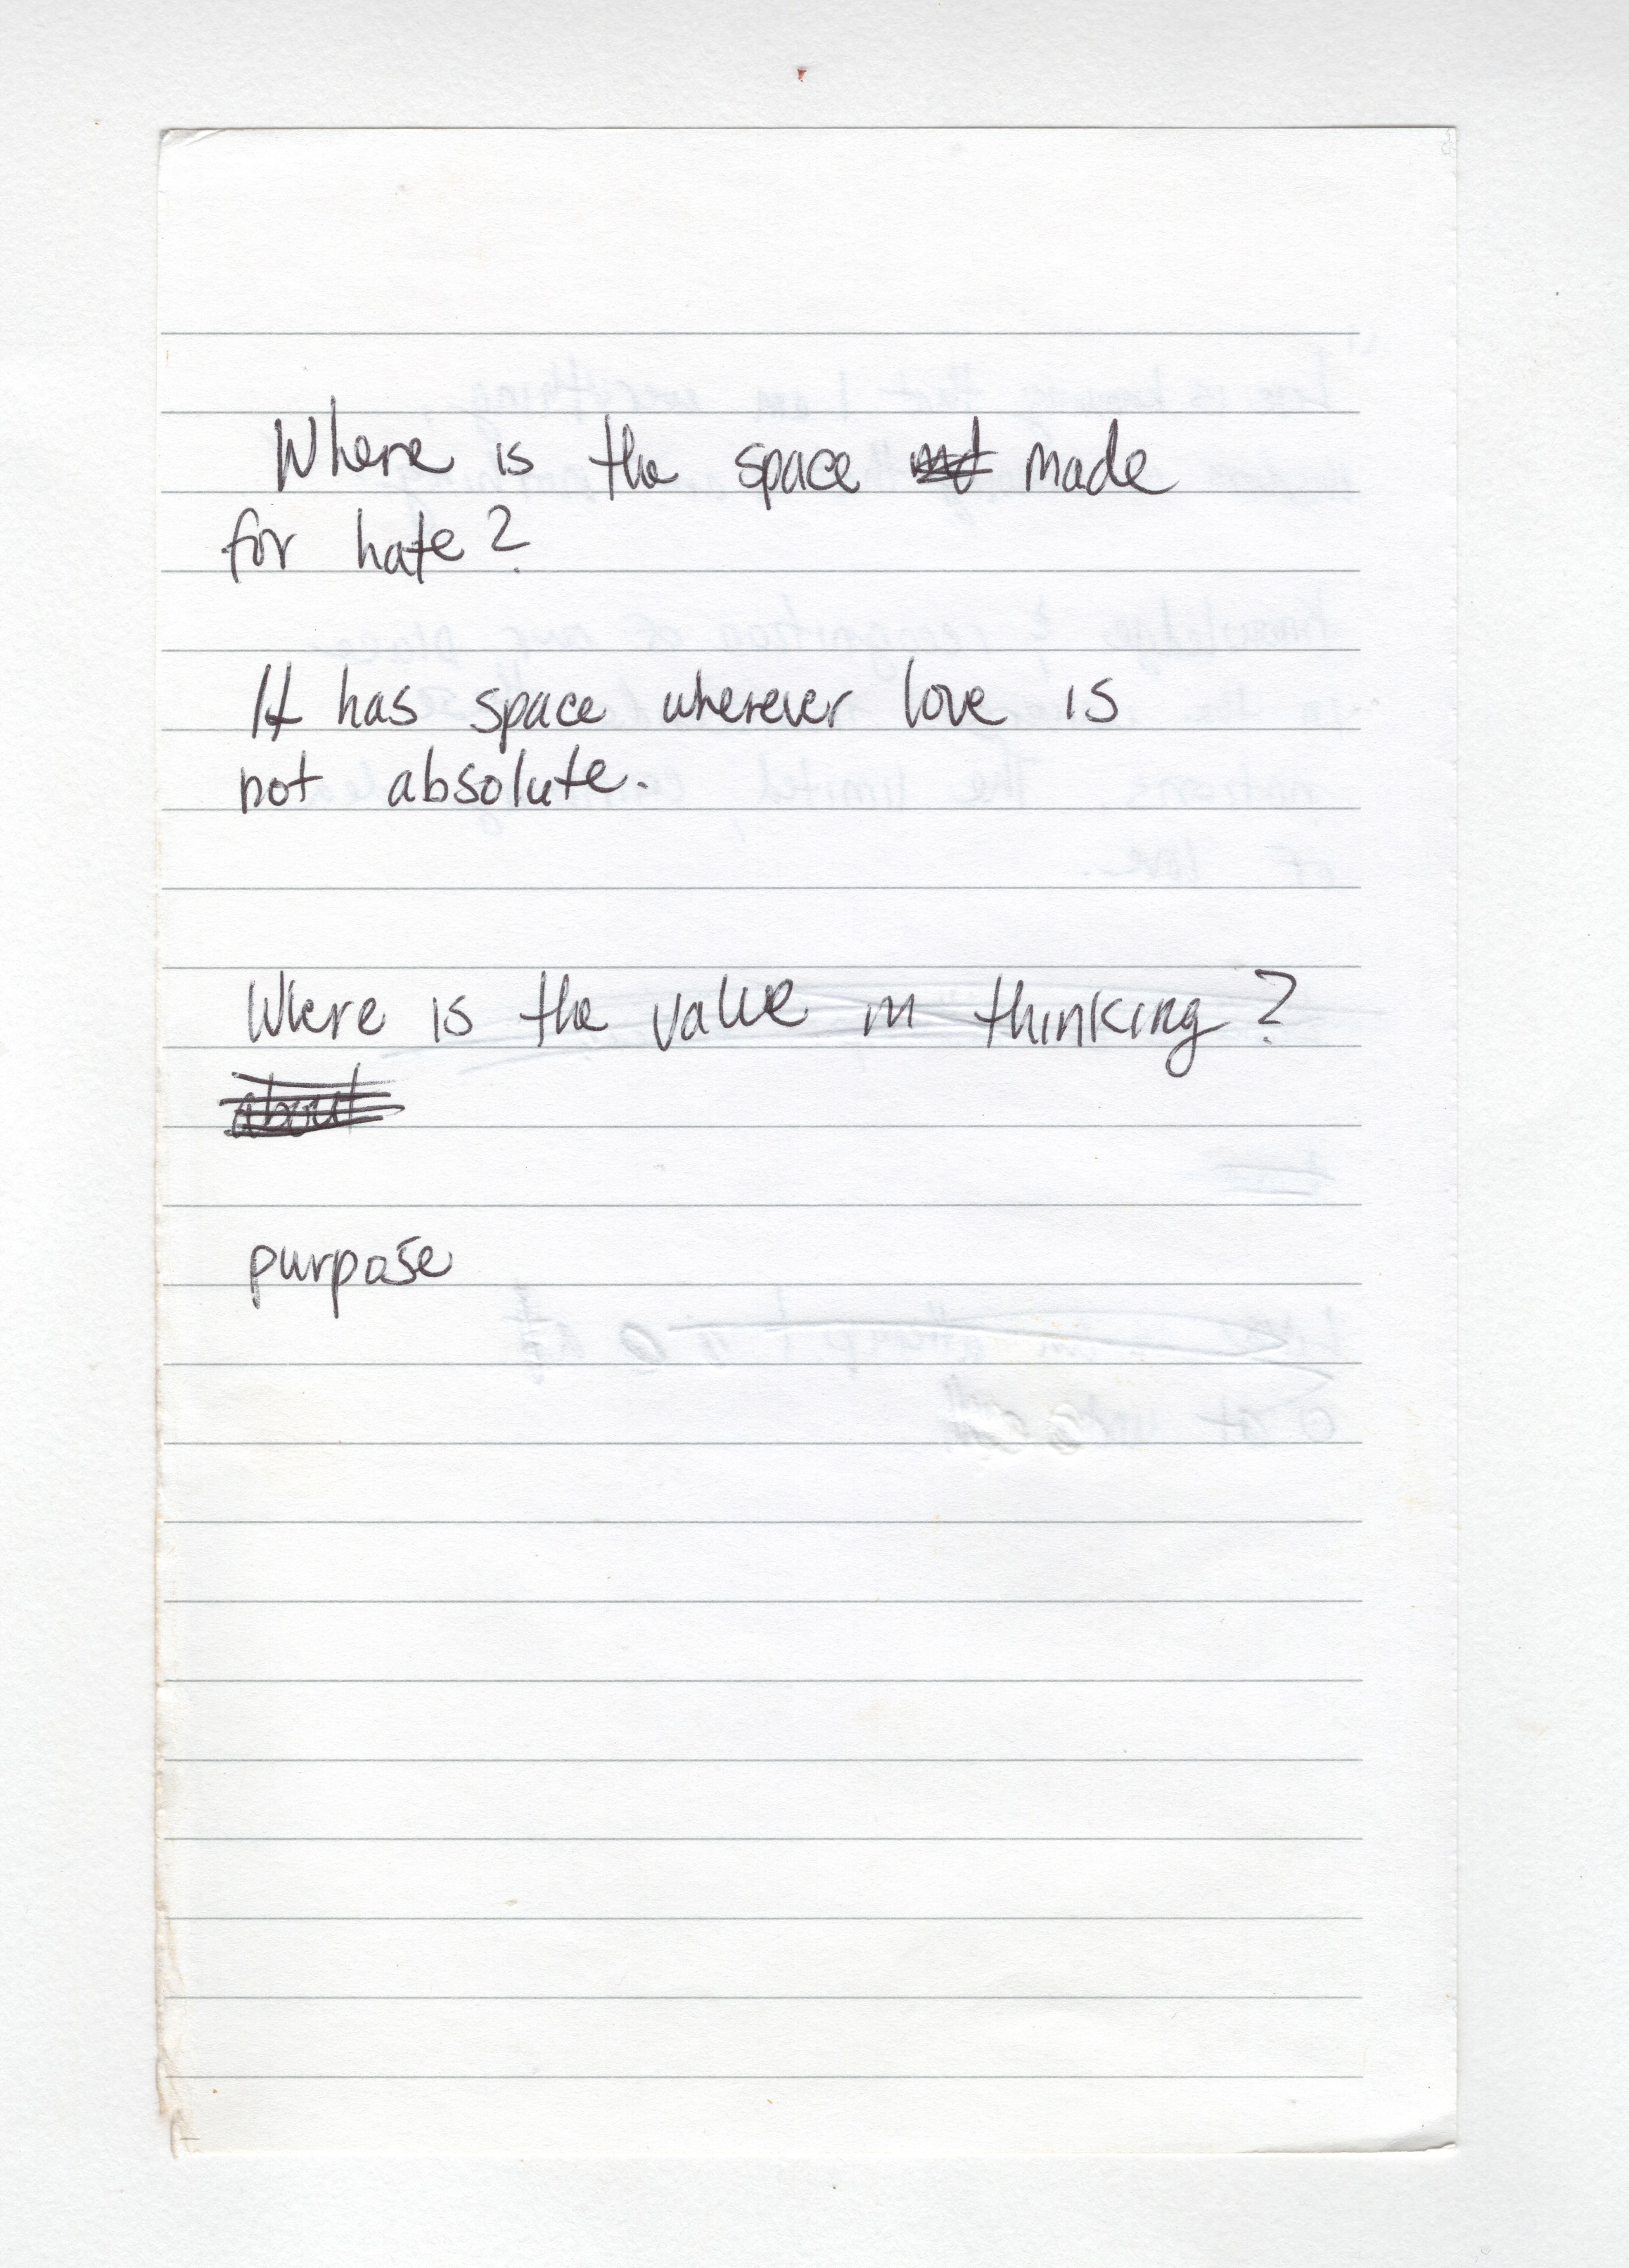 Where is the space made
for hate?
It has space wherever love is
not absolute.
Where is the value in thinking?
about
purpose